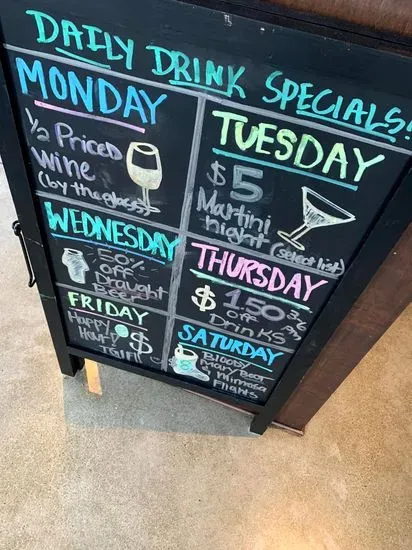 DAILY DRINK SPECIALS!
MONDAY
1/2 Priced
Wine
(by the glass)
TUESDAY
$5
Martini
night
(select list)
WEDNESDAY
50%
off
Draught
Beer
THURSDAY
$1.50
off
Drinks
FRIDAY
Happy
Hour!
$
TGIF!
SATURDAY
Bloody
Mary Beer
& Mimosa
Flights